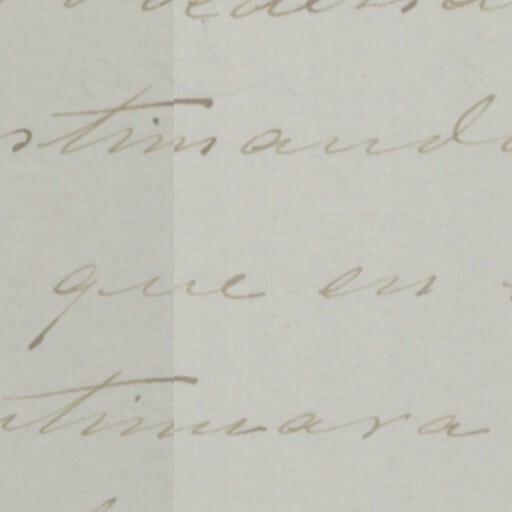 stimand
que en
tinuara